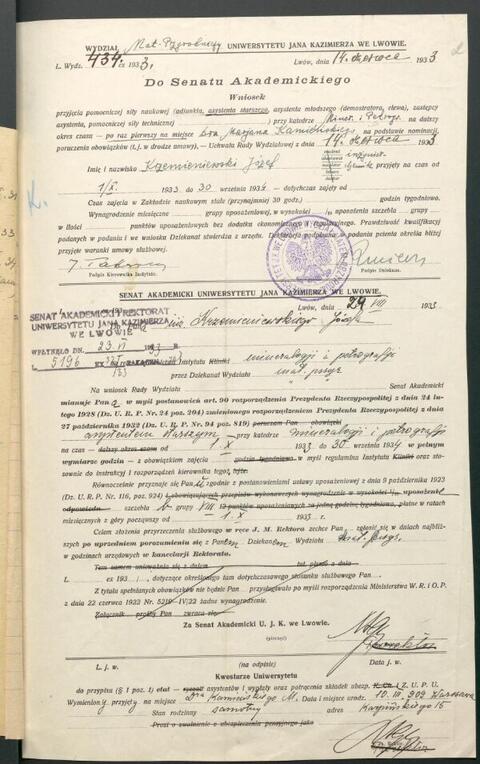 WYDZIAŁ Mat. Przyrodniczy UNIWERSYTETU JANA KAZIMIERZA WE LWOWIE.
L. Wydz. 434. ex 1933. Lwów, dnia 14. czerwca 1933
Do Senatu Akademickiego
Wniosek
przyjęcia pomocniczej siły naukowej (adjunkta, asystenta starszego, asystenta młodszego (demonstratora, eleva), zastępcy
asystenta, pomocniczej siły technicznej) przy katedrze Miner. i Petrogr. na dalszy
okres czasu — po raz pierwszy na miejsce Dra Marjana Kamieńskiego na podstawie nominacji,
poruczenia obowiązków (t. j. w drodze umowy). — Uchwała Rady Wydziałowej z dnia 14. czerwca 1933
Imię i nazwisko Krzemieniewski Józef przyjęty na czas od
1/X. 1933 do 30 września 1934 — dotychczas zajęty od
Czas zajęcia w Zakładzie naukowym stale (przynajmniej 30 godz.) godzin tygodniowo.
Wynagrodzenie miesięczne grupy uposażeniowej, w wysokości uposażenia szczebla grupy
w ilości punktów uposażeniowych bez dodatku ekonomicznego i regulacyjnego. Prawdziwość kwalifikacyj
podanych w podaniu i we wniosku Dziekanat stwierdza z urzędu. Deklaracja podpisana w podaniu petenta określa bliżej
przyjęte warunki umowy służbowej.
Podpis Kierownika Instytutu. Podpis Dziekana.
SENAT AKADEMICKI UNIWERSYTETU JANA KAZIMIERZA WE LWOWIE.
Lwów, dnia 24 VIII 1933
SENAT AKADEMICKI I REKTORAT
UNIWERSYTETU JANA KAZIMIERZA
WE LWOWIE
WPŁYNĘŁO DN. 23 VI 1933
L. 5196
Krzemieniewskiego Józefa
Instytutu Kliniki mineralogji i petrografji
przez Dziekanat Wydziału mat. przyr.
Na wniosek Rady Wydziału Senat Akademicki
mianuje Pana w myśl postanowień art. 90 rozporządzenia Prezydenta Rzeczypospolitej z dnia 24
lutego 1928 (Dz. U. R. P. Nr. 24 poz. 204) zmienionego rozporządzeniem Prezydenta Rzeczypospolitej z dnia
27 października 1932 (Dz. U. R. P. Nr. 94 poz. 819) porucza Panu obowiązki
asystentem starszym przy katedrze mineralogji i petrografji
na czas — dalszy okres czasu — od 1. X 1933 do 30 września 1934 w pełnym
wymiarze godzin — z obowiązkiem zajęć godzin tygodniowo — w myśl regulaminu Instytutu Kliniki oraz
stownie do instrukcji i rozporządzeń kierownika tegoż.
Równocześnie przyznaje się Panu zgodnie z postanowieniami ustawy uposażeniowej z dnia 9 października 1923
(Dz. U. R. P. Nr. 116, poz. 924) i obowiązujących przepisów wykonawczych wynagrodzenie w wysokości uposażenia
szczebla b grupy VIII punktów uposażeniowych za jedną godzinę tygodniową, płatne w ratach
miesięcznych z góry począwszy od 1. X 1933 r.
Celem złożenia przyrzeczenia służbowego w ręce J. M. Rektora zechce Pan zgłosić się w dniach najbliższych
po uprzedniem porozumieniu się z Panem Dziekanem Wydziału mat. przyr.
w godzinach urzędowych w kancelarji Rektoratu.
Tem samem unieważnia się z dniem tut. pismo z dnia
L. ex 193 , dotyczące określonego tam dotychczasowego stosunku służbowego Pan
Z tytułu spełnianych obowiązków nie będzie Pan przysługiwało po myśli rozporządzenia Ministerstwa W. R. i O. P.
z dnia 22 czerwca 1922 Nr. 5219-IV/22 żadne wynagrodzenie.
Załącznik prośby Pan zwraca się.
Za Senat Akademicki U. J. K. we Lwowie.
(pieczęć)
L. j. w. Data j. w.
(na odpisie)
Kwesturze Uniwersytetu
do przypisu (§ 1 poz. 1) etat — asystentów i wypłaty oraz potrącania składek ubezp. Z. U. P. U.
Wymieniony przyjęty na miejsce Dra Kamieńskiego M. Data i miejsce urodz. 10. III. 909 Warszawa
Stan rodzinny samotny adres Karpińskiego 15
Prosi o zwolnienie z ubezpieczenia pensyjnego jako